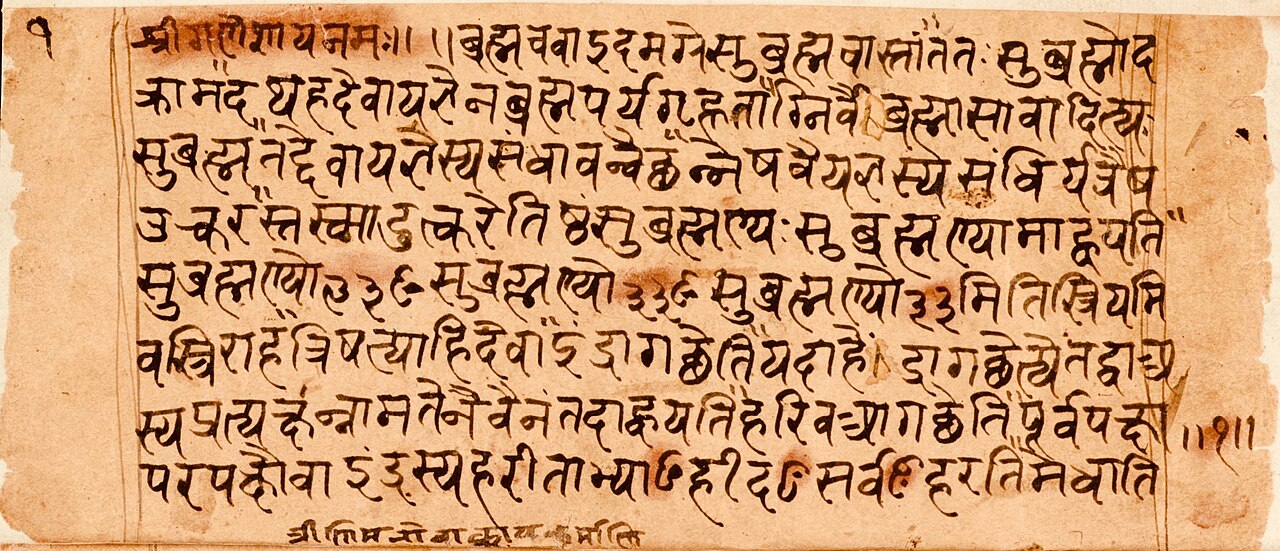 १
श्रीगणेशायनमः॥ ॥ब्रह्मचवाऽइदमग्रेसुब्रह्मचास्तांततः सुब्रह्मोद
क्रामदथहदेवायज्ञेनब्रह्मपर्यगृह्णताग्निर्वैब्रह्मासावादित्यः
सुब्रह्मतद्देवायज्ञस्यसंधावन्वैछन्नेषवैयज्ञस्यसंधिर्यत्रैष
उत्करस्तस्मादुत्करेतिष्ठंसुब्रह्मण्यः सुब्रह्मण्यामाह्वयति
सुब्रह्मण्यो३३ꣳसुब्रह्मण्यो३३ꣳसुब्रह्मण्यो३३मितिस्त्रियमि
वत्रिराहत्रिषत्याहिदेवाऽइंद्रागछेतियदाहेंद्रागछेत्येतद्वाअ
स्यप्रत्यक्षंनामतेनैवैनंतदाह्वयतिहरिवआगछेतिपूर्वपक्षा
॥१॥
परपक्षौवाऽइंद्रस्यहरीताभ्याꣳहीदꣳसर्वꣳहरतिमेधाति